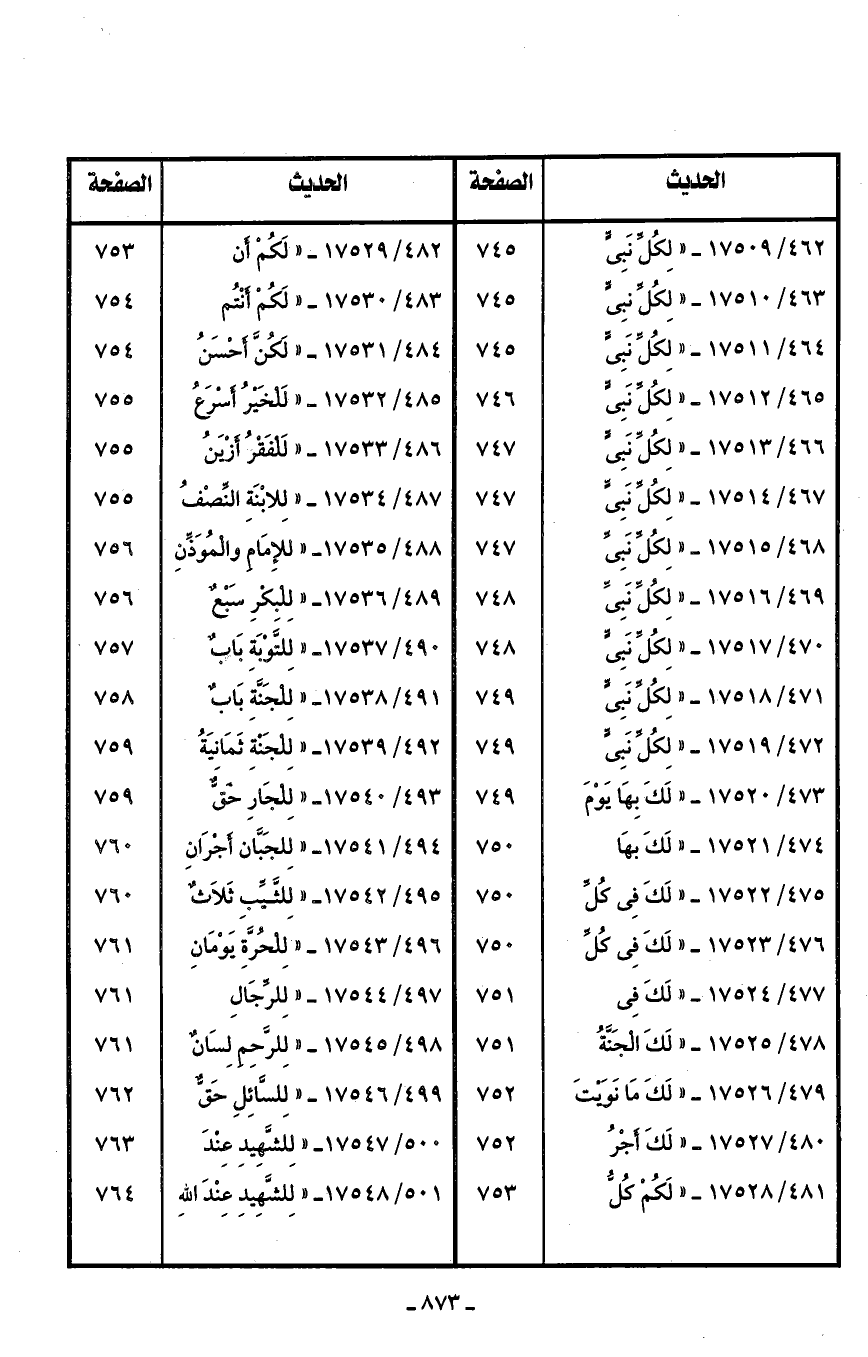 الحديث الصفحة الحديث الصفحة
٤٦٢/ ١٧٥٠٩ ـ « لِكُلِّ نَبِىٍّ ٧٤٥ ٤٨٢/ ١٧٥٢٩ ـ « لَكُمْ أَن ٧٥٣
٤٦٣/ ١٧٥١٠ ـ « لِكُلِّ نَبِىٍّ ٧٤٥ ٤٨٣/ ١٧٥٣٠ ـ « لَكُمْ أَنْتُم ٧٥٤
٤٦٤/ ١٧٥١١ ـ « لِكُلِّ نَبِىٍّ ٧٤٥ ٤٨٤/ ١٧٥٣١ ـ « لَكُنَّ أَحْسَنُ ٧٥٤
٤٦٥/ ١٧٥١٢ ـ « لِكُلِّ نَبِىٍّ ٧٤٦ ٤٨٥/ ١٧٥٣٢ ـ « لَلْخَيْرُ أَسْرَعُ ٧٥٥
٤٦٦/ ١٧٥١٣ ـ « لِكُلِّ نَبِىٍّ ٧٤٧ ٤٨٦/ ١٧٥٣٣ ـ « لَلْفَقْرُ أَزْيَنُ ٧٥٥
٤٦٧/ ١٧٥١٤ ـ « لِكُلِّ نَبِىٍّ ٧٤٧ ٤٨٧/ ١٧٥٣٤ ـ « لِلابْنَةِ النِّصْفُ ٧٥٥
٤٦٨/ ١٧٥١٥ ـ « لِكُلِّ نَبِىٍّ ٧٤٧ ٤٨٨/ ١٧٥٣٥ـ « لِلإِمَامِ والْمُوَذِّنِ ٧٥٦
٤٦٩/ ١٧٥١٦ ـ « لِكُلِّ نَبِىِّ ٧٤٨ ٤٨٩/ ١٧٥٣٦ـ « لِلْبِكْرِ سَبْعٌ ٧٥٦
٤٧٠/ ١٧٥١٧ ـ « لِكُلِّ نَبِىٍّ ٧٤٨ ٤٩٠/ ١٧٥٣٧ـ « لِلتَّوْبَةِ بَابٌ ٧٥٧
٤٧١/ ١٧٥١٨ ـ « لِكُلِّ نَبِىٍّ ٧٤٩ ٤٩١/ ١٧٥٣٨ـ « لِلْجَنَّةِ بَابٌ ٧٥٨
٤٧٢/ ١٧٥١٩ ـ « لِكُلِّ نَبِىٍّ ٧٤٩ ٤٩٢/ ١٧٥٣٩ـ « لِلْجَنْةِ ثَمَانِيَةُ ٧٥٩
٤٧٣/ ١٧٥٢٠ ـ « لَكَ بِهَا يَوْمَ ٧٤٩ ٤٩٣/ ١٧٥٤٠ـ « لِلْجَارِ حَقٌّ ٧٥٩
٤٧٤/ ١٧٥٢١ ـ « لَكَ بِهَا ٧٥٠ ٤٩٤/ ١٧٥٤١ـ « لِلجَبَّان أَجْرَانِ ٧٦٠
٤٧٥/ ١٧٥٢٢ ـ « لَكَ فِى كُلِّ ٧٥٠ ٤٩٥/ ١٧٥٤٢ـ « لِلثَّيِّبِ ثَلَاثٌ ٧٦٠
٤٧٦/ ١٧٥٢٣ ـ « لَكَ فِى كُلِّ ٧٥٠ ٤٩٦/ ١٧٥٤٣ ـ « لِلْحُرَّةِ يَوْمَانِ ٧٦١
٤٧٧/ ١٧٥٢٤ ـ « لَكَ فِى ٧٥١ ٤٩٧/ ١٧٥٤٤ ـ « لِلرِّجَالِ ٧٦١
٤٧٨/ ١٧٥٢٥ ـ « لَكَ الْجَنَّةُ ٧٥١ ٤٩٨/ ١٧٥٤٥ ـ « لِلرَّحِمِ لِسَانٌ ٧٦١
٤٧٩/ ١٧٥٢٦ ـ « لَكَ مَا نَوَيْتَ ٧٥٢ ٤٩٩/ ١٧٥٤٦ ـ « لِلسَّائِلِ حَقٌّ ٧٦٢
٤٨٠/ ١٧٥٢٧ ـ « لَكَ أَجْرُ ٧٥٢ ٥٠٠/ ١٧٥٤٧ـ « لِلشَّهِيدِ عِنْدَ ٧٦٣
٤٨١/ ١٧٥٢٨ ـ « لَكُمْ كُلُّ ٧٥٣ ٥٠١/ ١٧٥٤٨ـ « لِلشَّهِيدِ عِنْدَ اللهِ ٧٦٤
ـ ٨٧٣ ـ